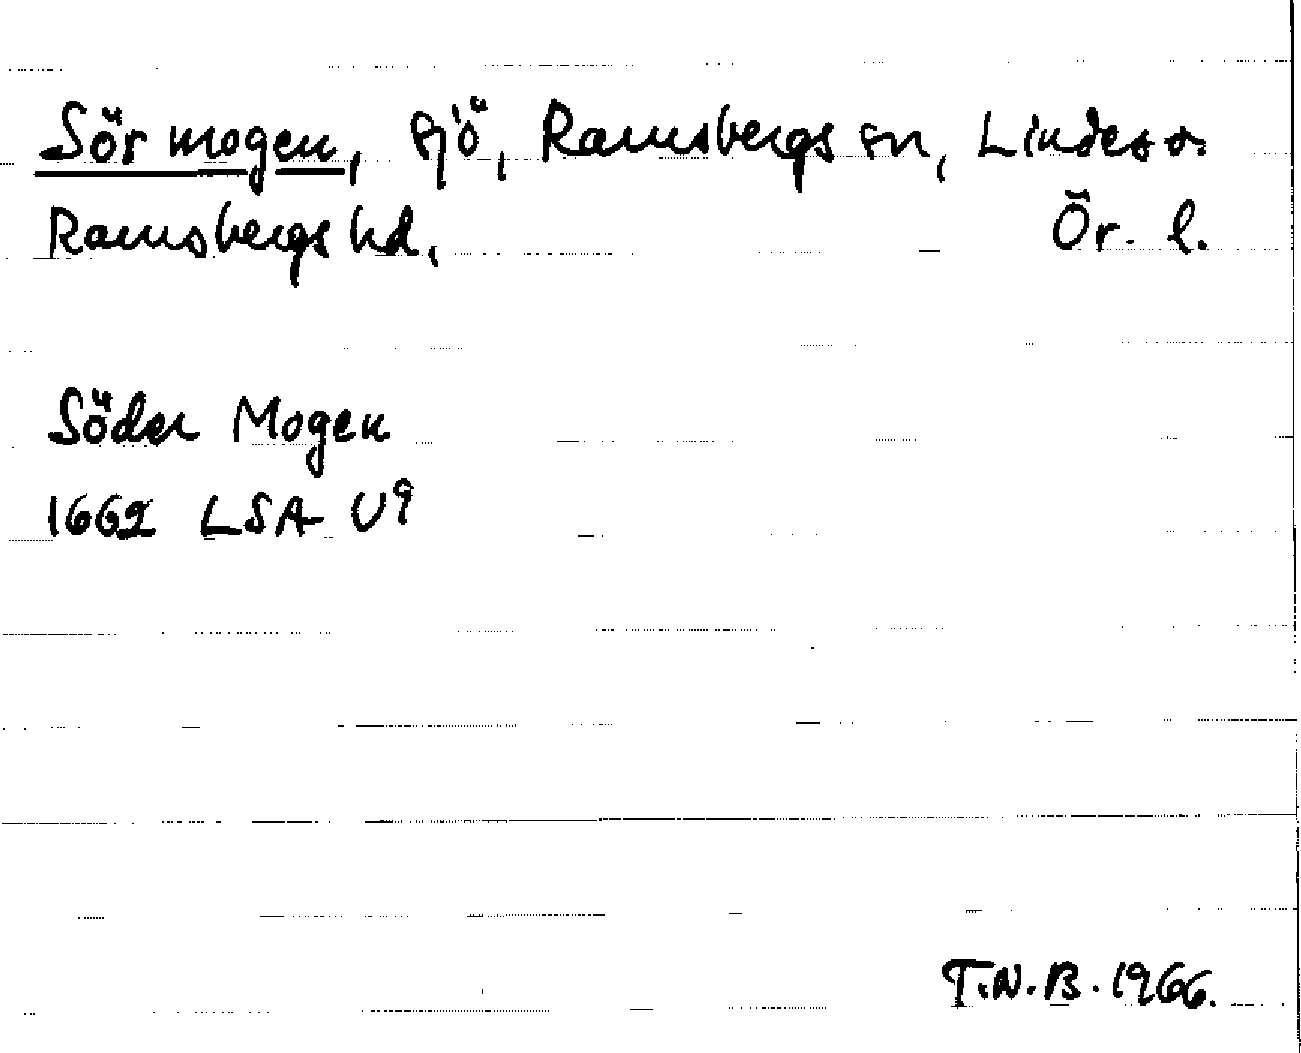 Sörmogen, sjö, Ramsbergs sn, Lindes o.
Ramsbergs hd. Ör. l.
Söder Mogen
1662 LSA U9
T.N.B. 1966.